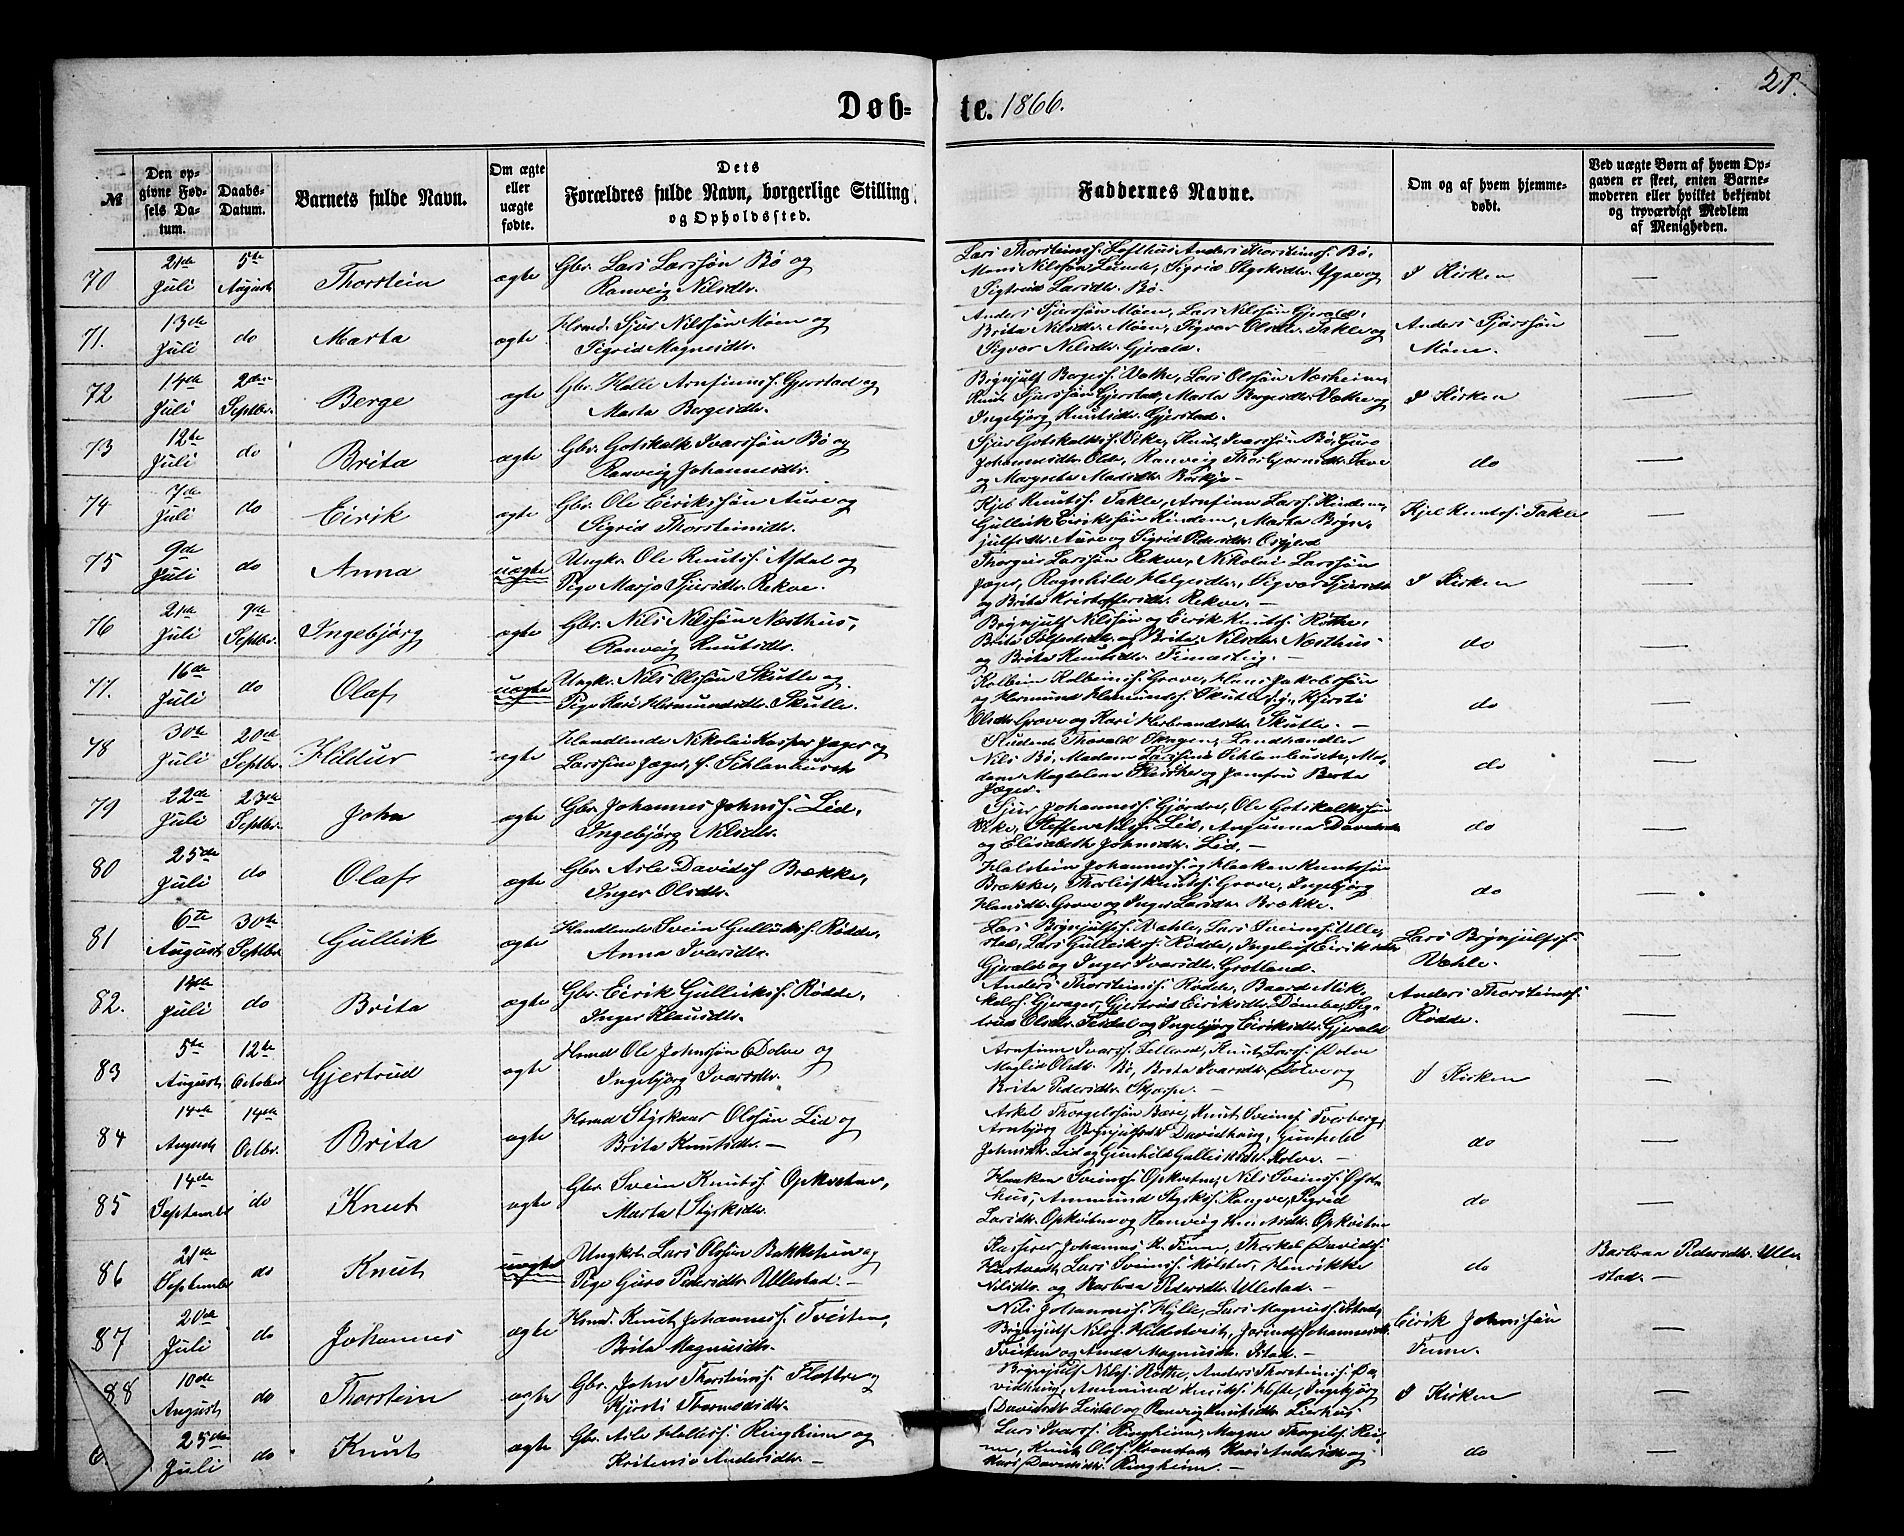 Døb-
te. 1866.
21.
№
Den op-
givne Fød-
sels Da-
tum.
Daabs-
Datum.
Barnets fulde Navn.
Om ægte
eller
uægte
fødte.
Dets
Forældres fulde Navn, borgerlige Stilling
og Opholdssted.
Faddernes Navne.
Om og af hvem hjemme-
døbt.
Ved uægte Børn af hvem Op-
gaven er skeet, enten Barne-
moderen eller hvilket bekjendt
og troværdigt Medlem
af Menigheden.
70 21de Juli 5te August Thorstein ægte Gbr. Lars Larssøn Bø og
Ranveig Nilsdtr.
Lars Thorsteinss. Lofthus, Anders Thorsteinss. Bø,
Mons Nilssøn Lunde, Sigrid Styksdtr. Ygre og
Sigtrud Larsdtr. Bø.
I Kirken —
71. 13de Juli do Marta ægte Husmd. Sjur Nilssøn Møen og
Sigrid Magnesdtr.
Anders Sjurssøn Møen, Lars Nilssøn Gjerald,
Brita Nilsdtr. Møen, Sigvor Olsdtr. Takle og
Sigvor Nilsdtr. Gjerald.
Anders Sjurssøn
Møen. —
72 14de Juli 2den Septbr. Berge ægte Gbr. Helle Arnfinnss. Gjerstad og
Marta Bergesdtr.
Brynjulf Bergess. Væthe, Lars Olssøn Næsheim,
Knut Sjurssøn Gjerstad, Marta Bergesdtr. Væthe og
Ingebjørg Knutsdtr. Gjerstad.
I Kirken —
73 12te Juli do Brita ægte Gbr. Gotskalk Ivarssøn Bø og
Ranveig Johannesdtr.
Sjur Gotskalkss. Vike, Knut Ivarssøn Bø, Guro
Johannesdtr. Olde, Ranveig Thorbjørnsdtr. Save
og Margreta Madsdtr.
do —
74 7de Juli do Eirik ægte Gbr. Ole Eirikssøn Aure og
Sigrid Thorsteinsdtr.
Kjel Knutss. Takle, Arnfinn Larss. Kinden,
Gulleik Eirikssøn Kindem, Marta Bryn-
julfsdtr. Aure og Sigrid Pedersdtr.
Kjel Knutss. Takle —
75 9de Juli do Anna uægte Ungk. Ole Knutss. Afdal og
Pige Marjo Sjursdtr. Rekve.
Thorgils Larssøn Rekve, Nikolai Larssøn
Jæger, Ragnhild Helgesdtr., Sigvor Sjursdtr.
og Brita Kristoffersdtr. Rekve. —
I Kirken —
76 21de Juli 9de Septbr. Ingebjörg ægte Gbr. Nils Nilssøn Næsthus,
Ranveig Knutsdtr.
Brynjulf Nilssøn og Eirik Knutss. Røthe,
Brita Sjfsdtr. og Brita Nilsdtr. Næsthus
og Brita Knutsdtr. —
do —
77. 16de Juli do Olaf uægte Ungk. Nils Olssøn Skutle og
Pige Kari Hermundsdtr. Skutle.
Kolbein Kolbeinss. Grove, Hans Jakobssøn
og Hermund Hermundss. Skutle, Kjersti
Olsdtr. Grove og Kari Herbrandsdtr. Skutle. —
do —
78 30te Juli 20de Septbr. Hildur ægte Handlende Nikolai Kasper Jæger og
Larssine Jæger, f. Schlanbusch
Student Thorvald Pragen, Landhandler
Nils Bø, Madam Larssine Schlanbusch, Ma-
dam Magdalena Fleischer og Jomfru Berta
Jæger.
do —
79 22de Juli 23de Septbr. John ægte Gbr. Johannes Johnss. Lid,
Ingebjørg Nilsdtr.
Sjur Johanness. Gjørdre, Ole Gotskalkssøn
Vike, Steffen Nilss. Lid, Davidsdtr.
og Elisabeth Johnsdtr. Lid. —
do —
80 25de Juli do Olaf ægte Gbr. Arle Davidss Brække,
Inger Olsdtr.
Halstein Johanness. og Haaken Knutssøn
Brække, Thorleif Knutss. Grove, Ingebjörg
Hansdtr. Grove og Inger Larsdtr. Brække.
do —
81 6te August 30te Septbr Gulleik ægte Handlende Svein Gulleikss. Rødde,
Anna Ivarsdtr.
Lars Brynjulfss. Væhle, Lars Sveinss. Ulle-
stad, Lars Gulleikss. Rødde, Ingeleif Eiriksdtr.
Gjerald og Inger Ivarsdtr. Grotland.
Lars Brynjulfss.
Væhle. —
82. 14de Juli do Brita ægte Gbr. Eirik Gulleikss. Rødde,
Inger Klausdtr.
Anders Thorsteinss. Rødde, Baard Mik-
kelss. Gjerager, Gjertrud Eiriksdtr. Dömbe,
Olsdtr. Tesdal og Ingebjørg Eiriksdtr. Gjerald
Anders Thorsteinss.
Rødde. —
83 5te August 12te October Gjertrud ægte Husmd Ole Johnssøn Dolve og
Ingebjörg Ivarsdtr.
Arnfinn Ivarss. Knut Larss. Dolve
Magli Olsdtr. Bø, Brita Ivarsdtr. Dolve og
Brita Pedersdtr. Skjerpe. —
I Kirken —
84 14de August 14de Octbr. Brita ægte Husmd Styrkaar Olssøn Lid og
Brita Knutsdtr. —
Askel Thorgelssøn Bære, Knut Sveinss. Tverberg,
Arnbjörg Brynjulfsdtr. Davidhaug, Gunhild
Johnsdtr. Lid og Gunhild Gulleiksdtr. —
do —
85 14de September do Knut ægte Gbr Svein Knutss Opkvitne,
Marta Styksdtr.
Haaken Sveinss. Opkvitne, Nils Sveinss. Øfst-
hus, Ammund Styrkss. Rongve, Sigrid
Larsdtr. Opkvitne og Ranveig Knutsdtr. Opkvitne
do —
86 21de September do Knut uægte Ungkr. Lars Olssøn Bakketun og
Pige Guro Pedersdtr. Ullestad. —
Kasserer Johannes K. Finne, Thorkel Davidss.
Lars Sveinss. Mölster, Henrikke
Nilsdtr. og Barbraa Pedersdtr. Ullestad. —
do
Barbraa Pedersdtr. Ulle-
stad. —
87 20de Juli do Johannes ægte Husmd. Knut Johanness. Tveiten,
Brita Magnusdtr.
Nils Johanness. Hylle, Lars Magnuss. Istad,
Brynjulf Nilss. Hildestveit, Jorind Johannesdtr.
Tveiten og Anna Magnusdtr. Istad. —
Eirik Johnssøn
Finne. —
88 10de August do Thorstein ægte Gbr. John Thorsteinss. Flattre og
Kjersti Thormodsdtr.
Brynjulf Nilss. Røthe, Anders Thorsteinss. Da-
vidhaug, Ammund Knutss. Hefte, Ingebjörg
Davidsdtr. Lirdal og Ranveig Knutsdtr. Lirhus.
I Kirken —
25de Juli do Knut ægte Gbr. Arle Helless. Ringheim og
Kristense Andersdtr. —
Lars Ivarss. Ringheim, Magne Thorgilss. Rei-
me, Knut Olss. Kvamstad, Kari Andersdtr. og
Kari Davidsdtr. Ringheim. —
do —